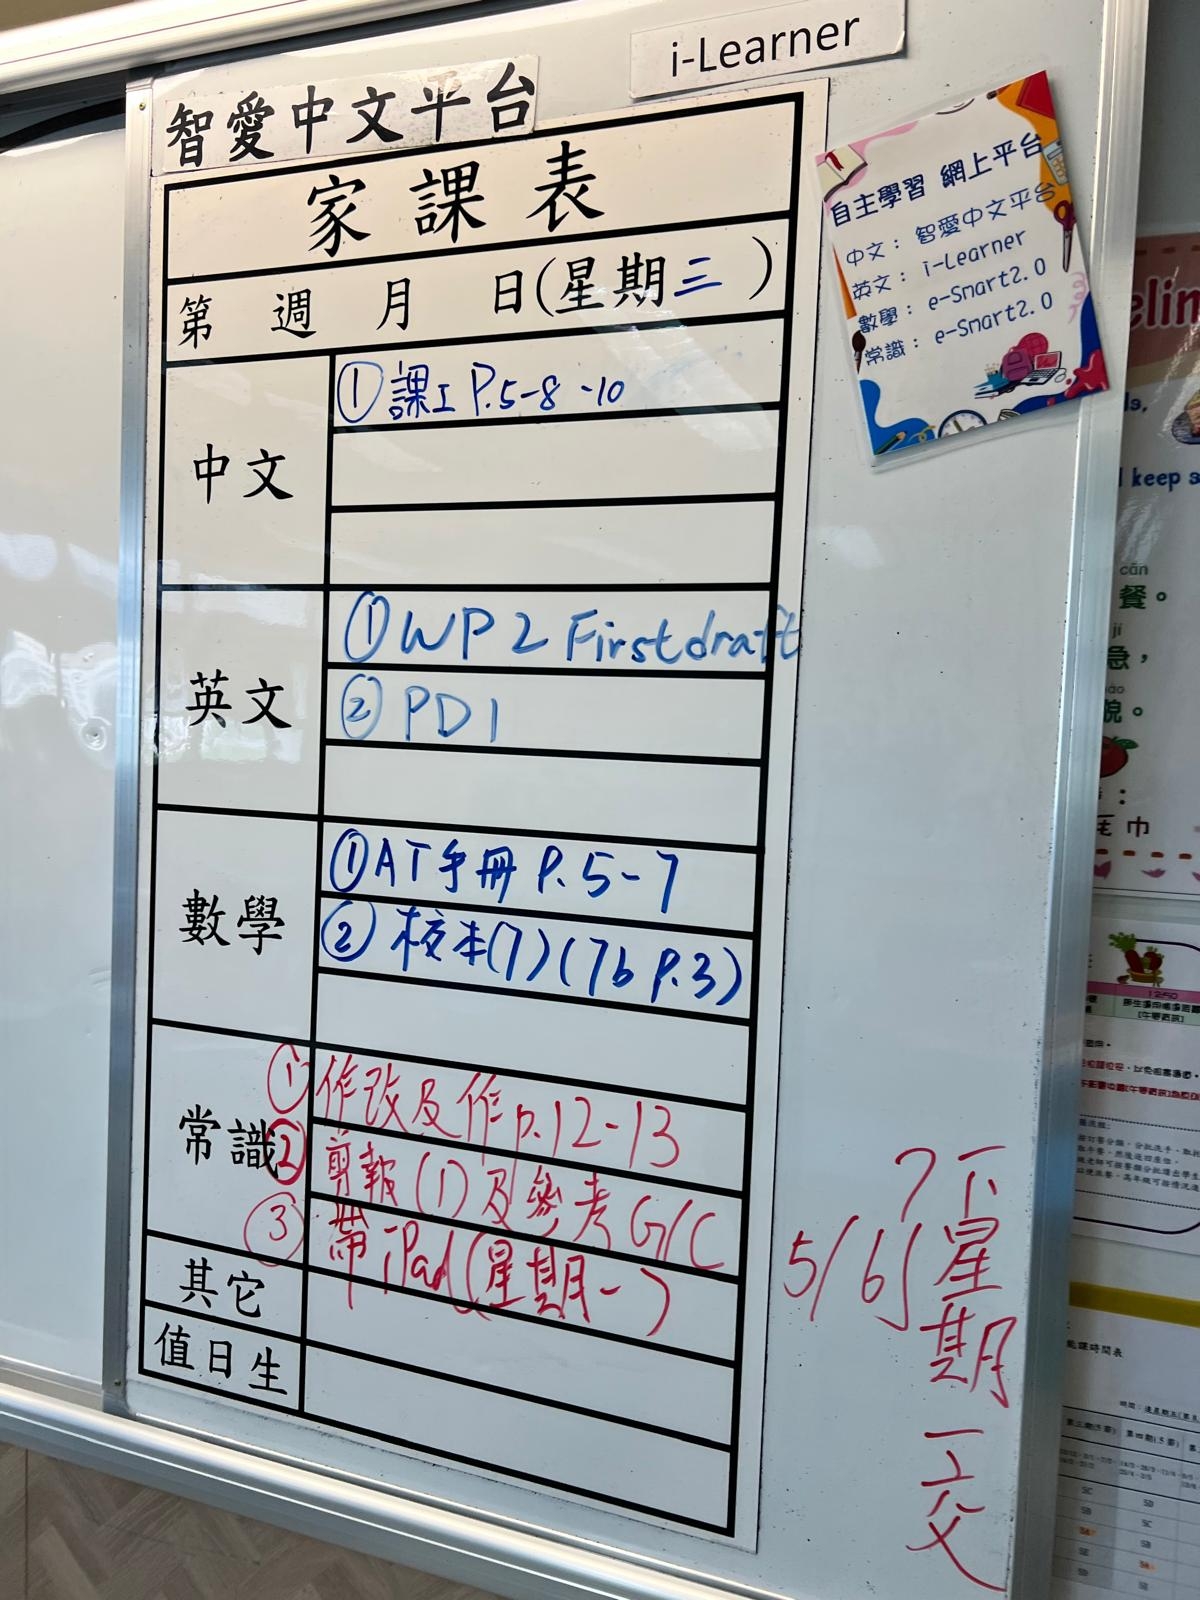 i-Learner
智愛中文平台
家課表
第 週 月 日(星期三 )
中文
①課工 P.5-8 -10
英文
①WP 2 First draft
② PD1
數學
①AT手冊 P.5-7
② 校本(7)(7b P.3)
常識
① 作改及作p.12-13
② 剪報(1)及參考G/C
③ 帶iPad(星期一)
其它
值日生
5/6
下星期一交
自主學習 網上平台
中文： 智愛中文平台
英文： i-Learner
數學： e-Smart2.0
常識： e-Smart2.0
keep s
cān
餐。
jí
急，
貌。
毛巾
12:50
第三期(5節)
第四期(5節)
5C
5D
5B
5C